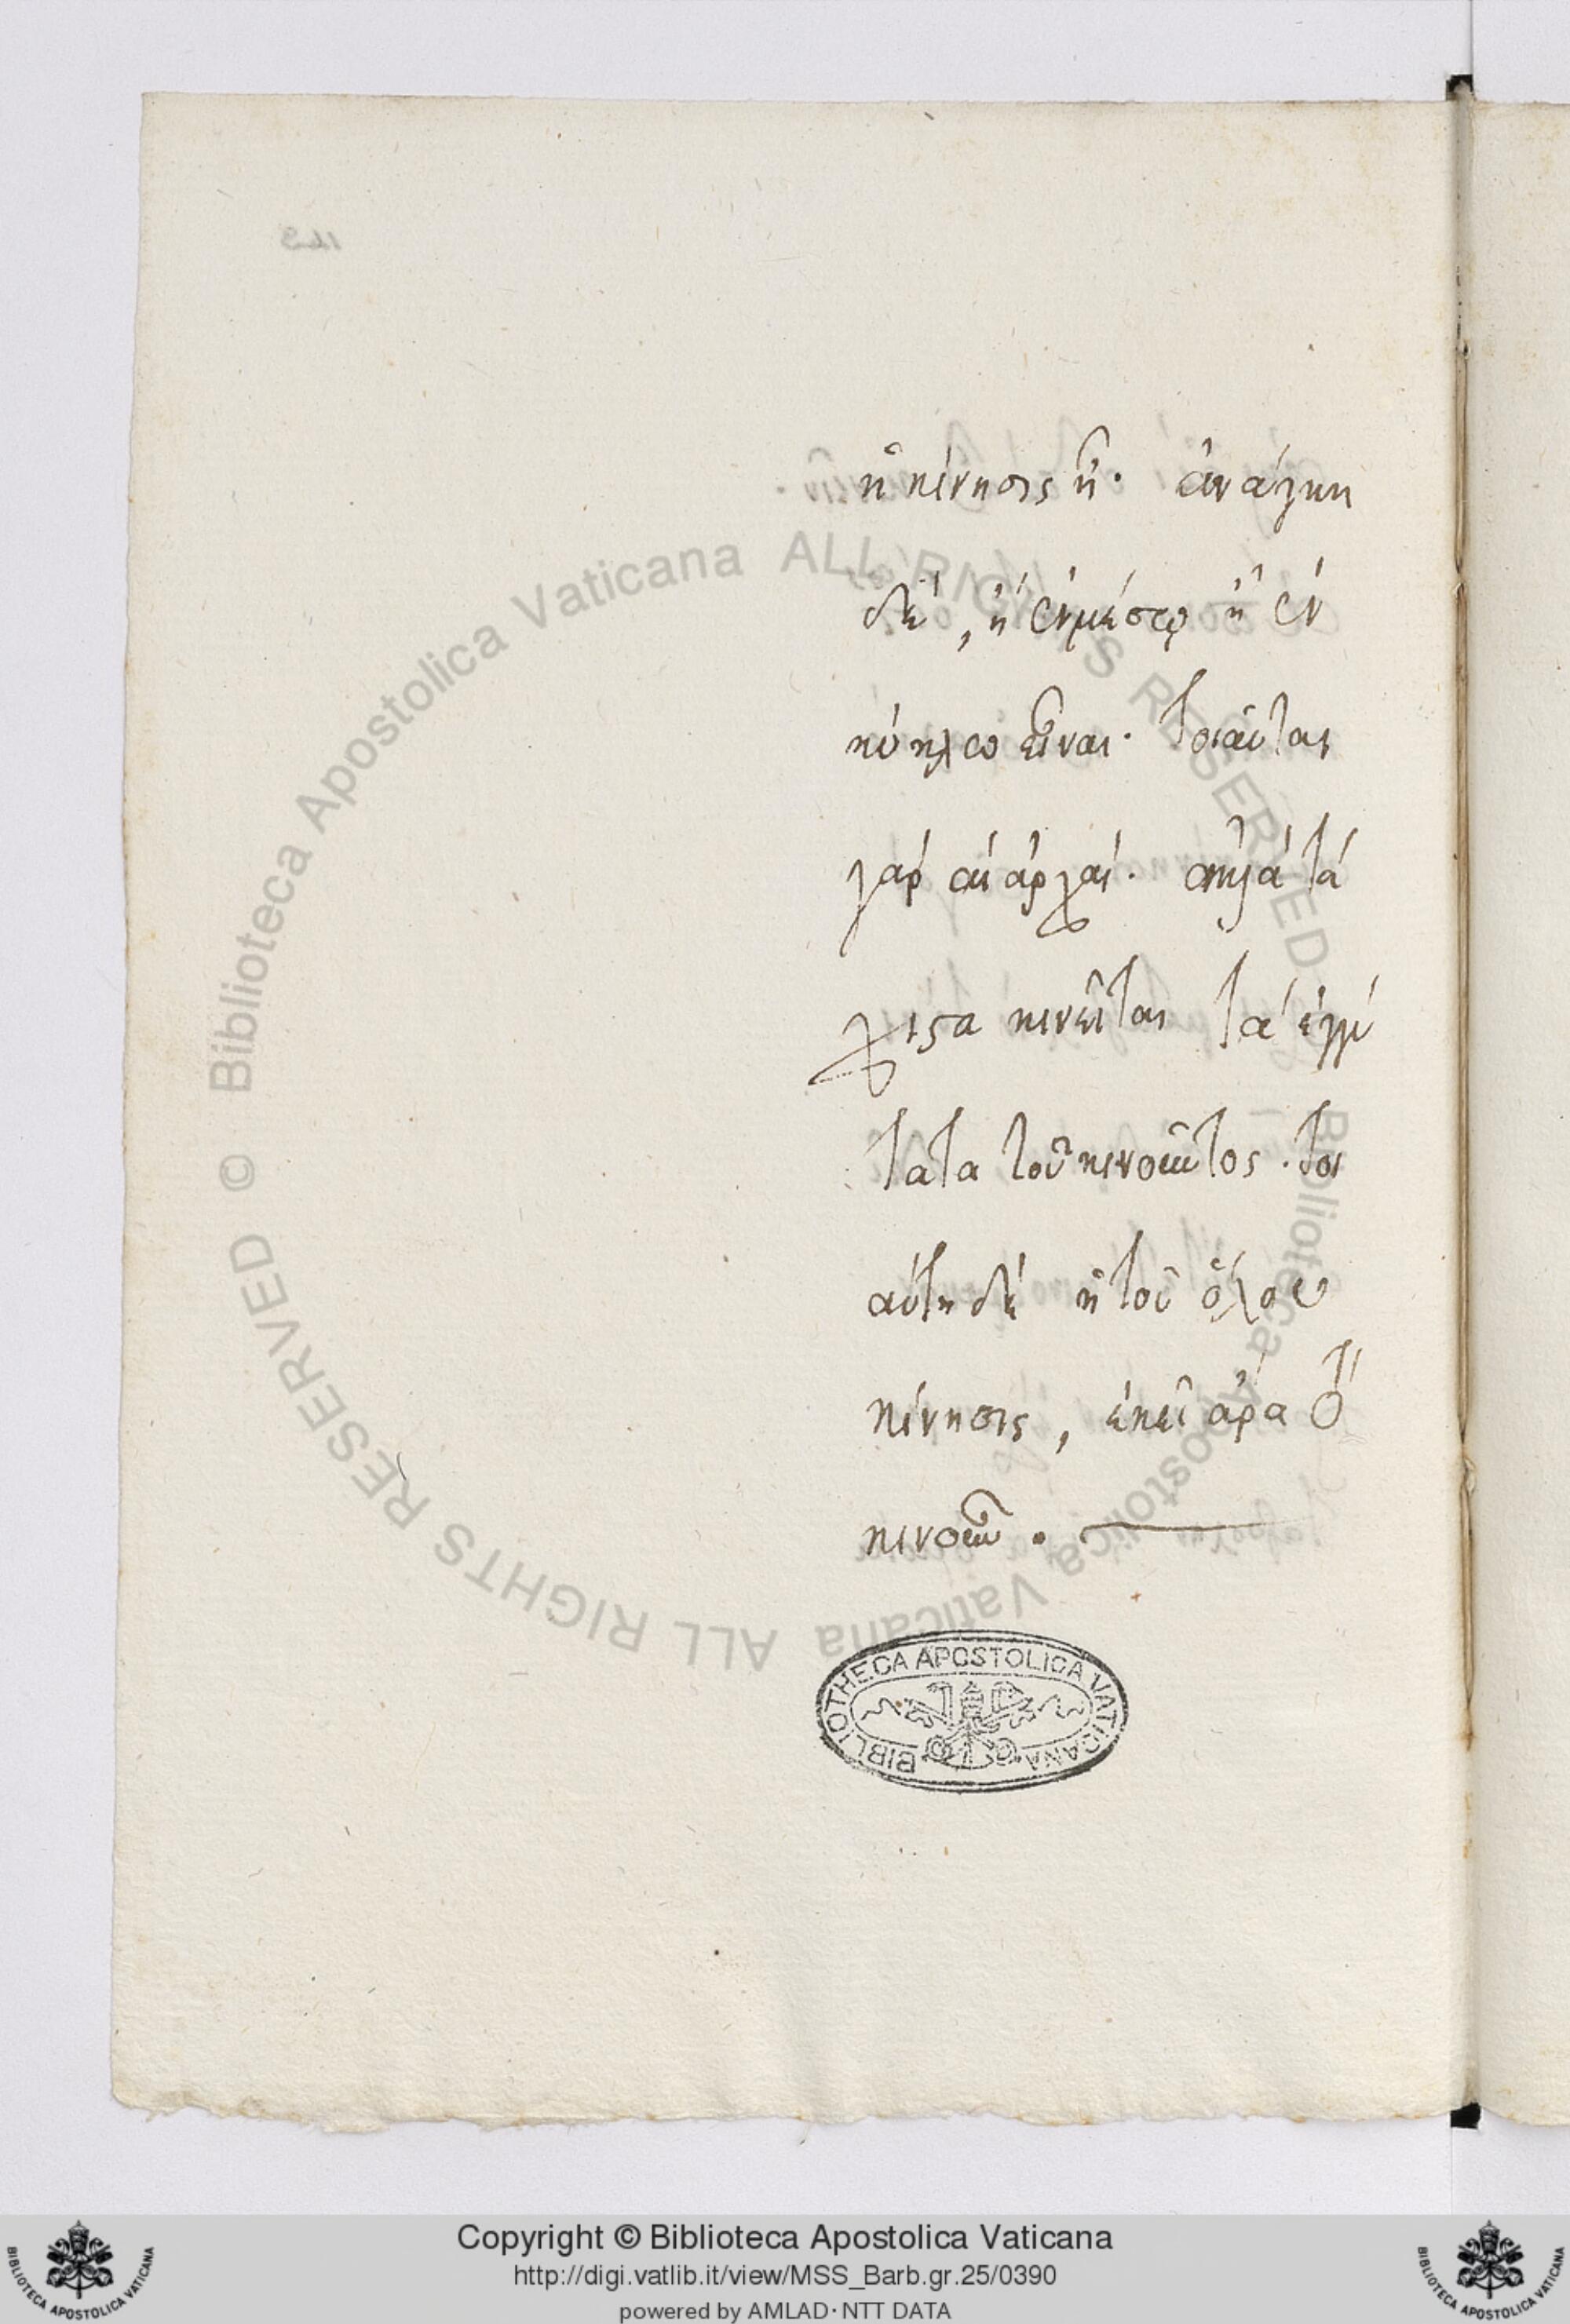 ἡ κίνησις ἦν· ἀνάγκη
δὲ, ἢ ἐν μέσῳ ἢ ἐν
κύκλῳ εἶναι· τοιαῦται
γὰρ αἱ ἀρχαί. ἀλλὰ τά
χιστα κινεῖται τὰ ἐγγύ
τατα τοῦ κινοῦντος. τοι
αύτη δὲ ἡ τοῦ ὅλου
κίνησις, ἐκεῖ ἄρα τὸ
κινοῦν.
BIBLIOTHECA APOSTOLICA VATICANA
© Biblioteca Apostolica Vaticana ALL RIGHTS RESERVED
Biblioteca Apostolica Vaticana ALL RIGHTS RESERVED
Copyright © Biblioteca Apostolica Vaticana
http://digi.vatlib.it/view/MSS_Barb.gr.25/0390
powered by AMLAD·NTT DATA
BIBLIOTECA APOSTOLICA VATICANA
BIBLIOTECA APOSTOLICA VATICANA